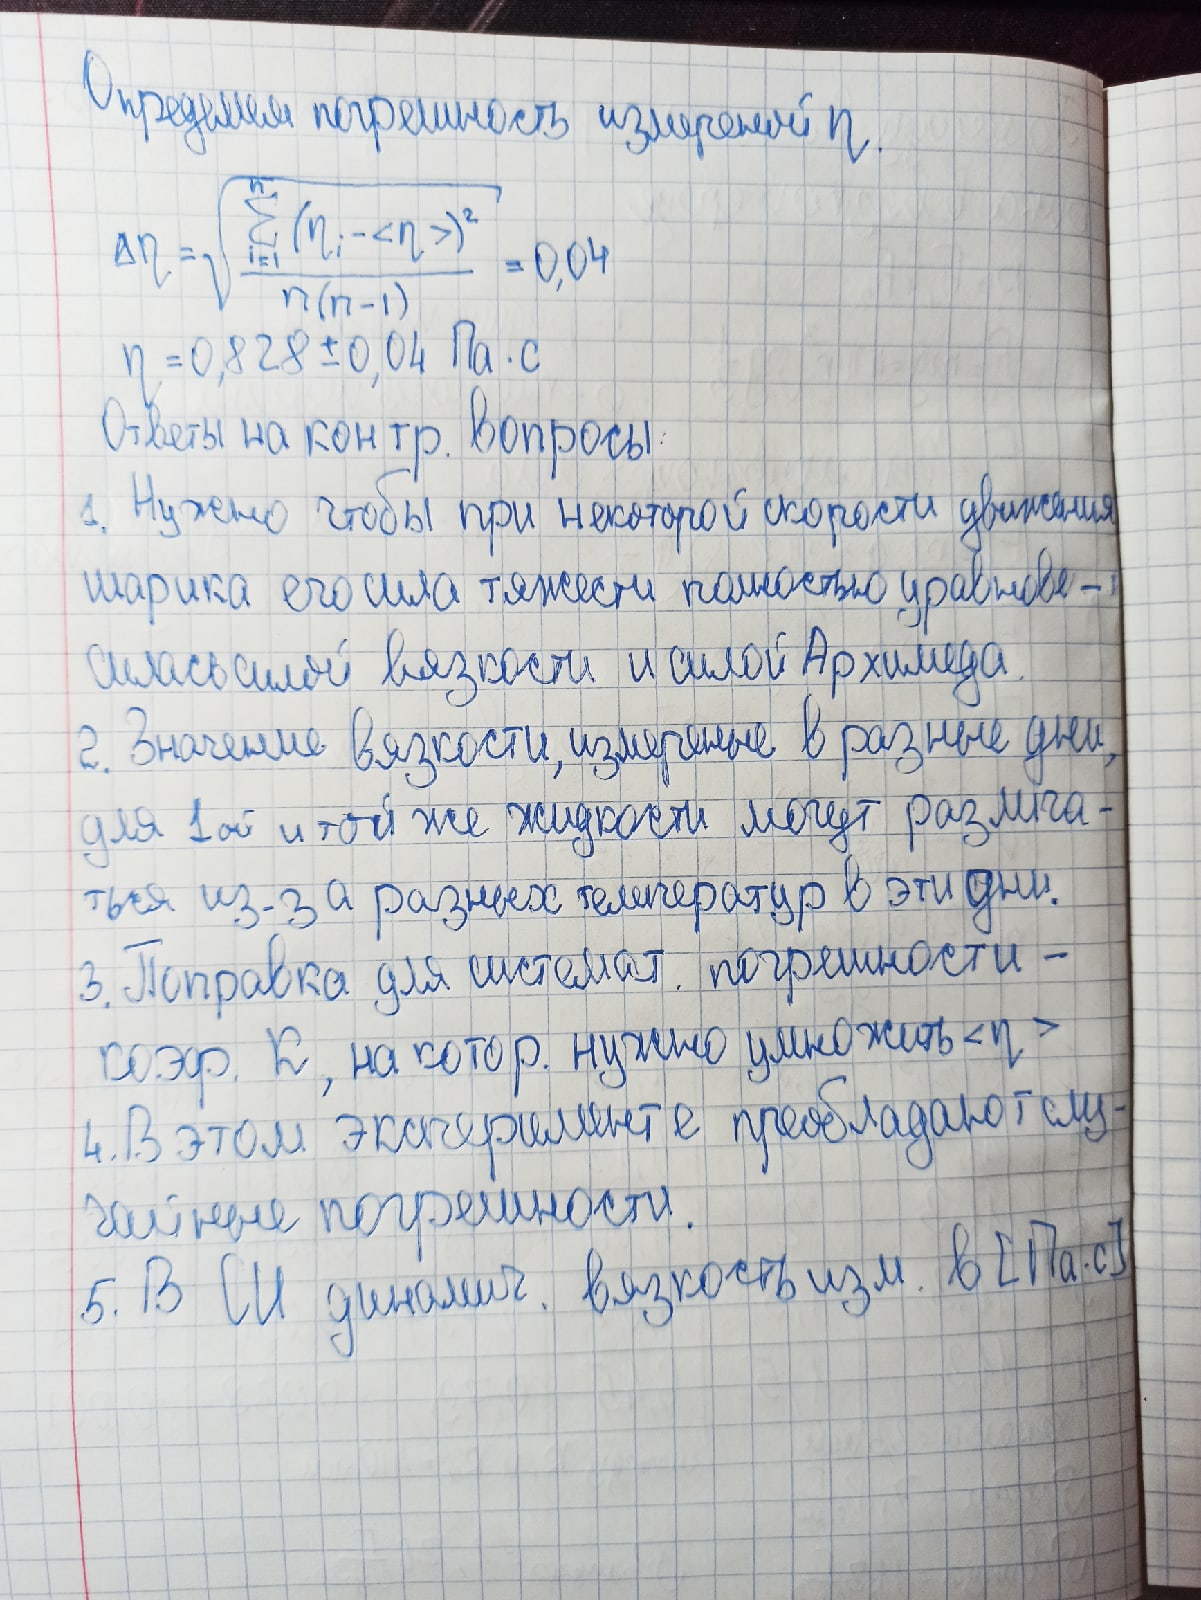 Определяем погрешность измеренной η.
Δη = √(∑_{i=1}^{n} (η_i - <η>)² / n(n-1)) = 0,04
η = 0,828 ± 0,04 Па·с
Ответы на контр. вопросы:
1. Нужно чтобы при некоторой скорости движения
шарика его сила тяжести полностью уравнове-
силась силой вязкости и силой Архимеда.
2. Значение вязкости, измереные в разные дни,
для 1ой и той же жидкости могут различа-
ться из-за разных температур в эти дни.
3. Поправка для системат. погрешности -
коэф. K, на котор. нужно умножить <η>
4. В этом эксперименте преобладают слу-
чайные погрешности.
5. В СИ динамич. вязкость изм. в [Па·с]